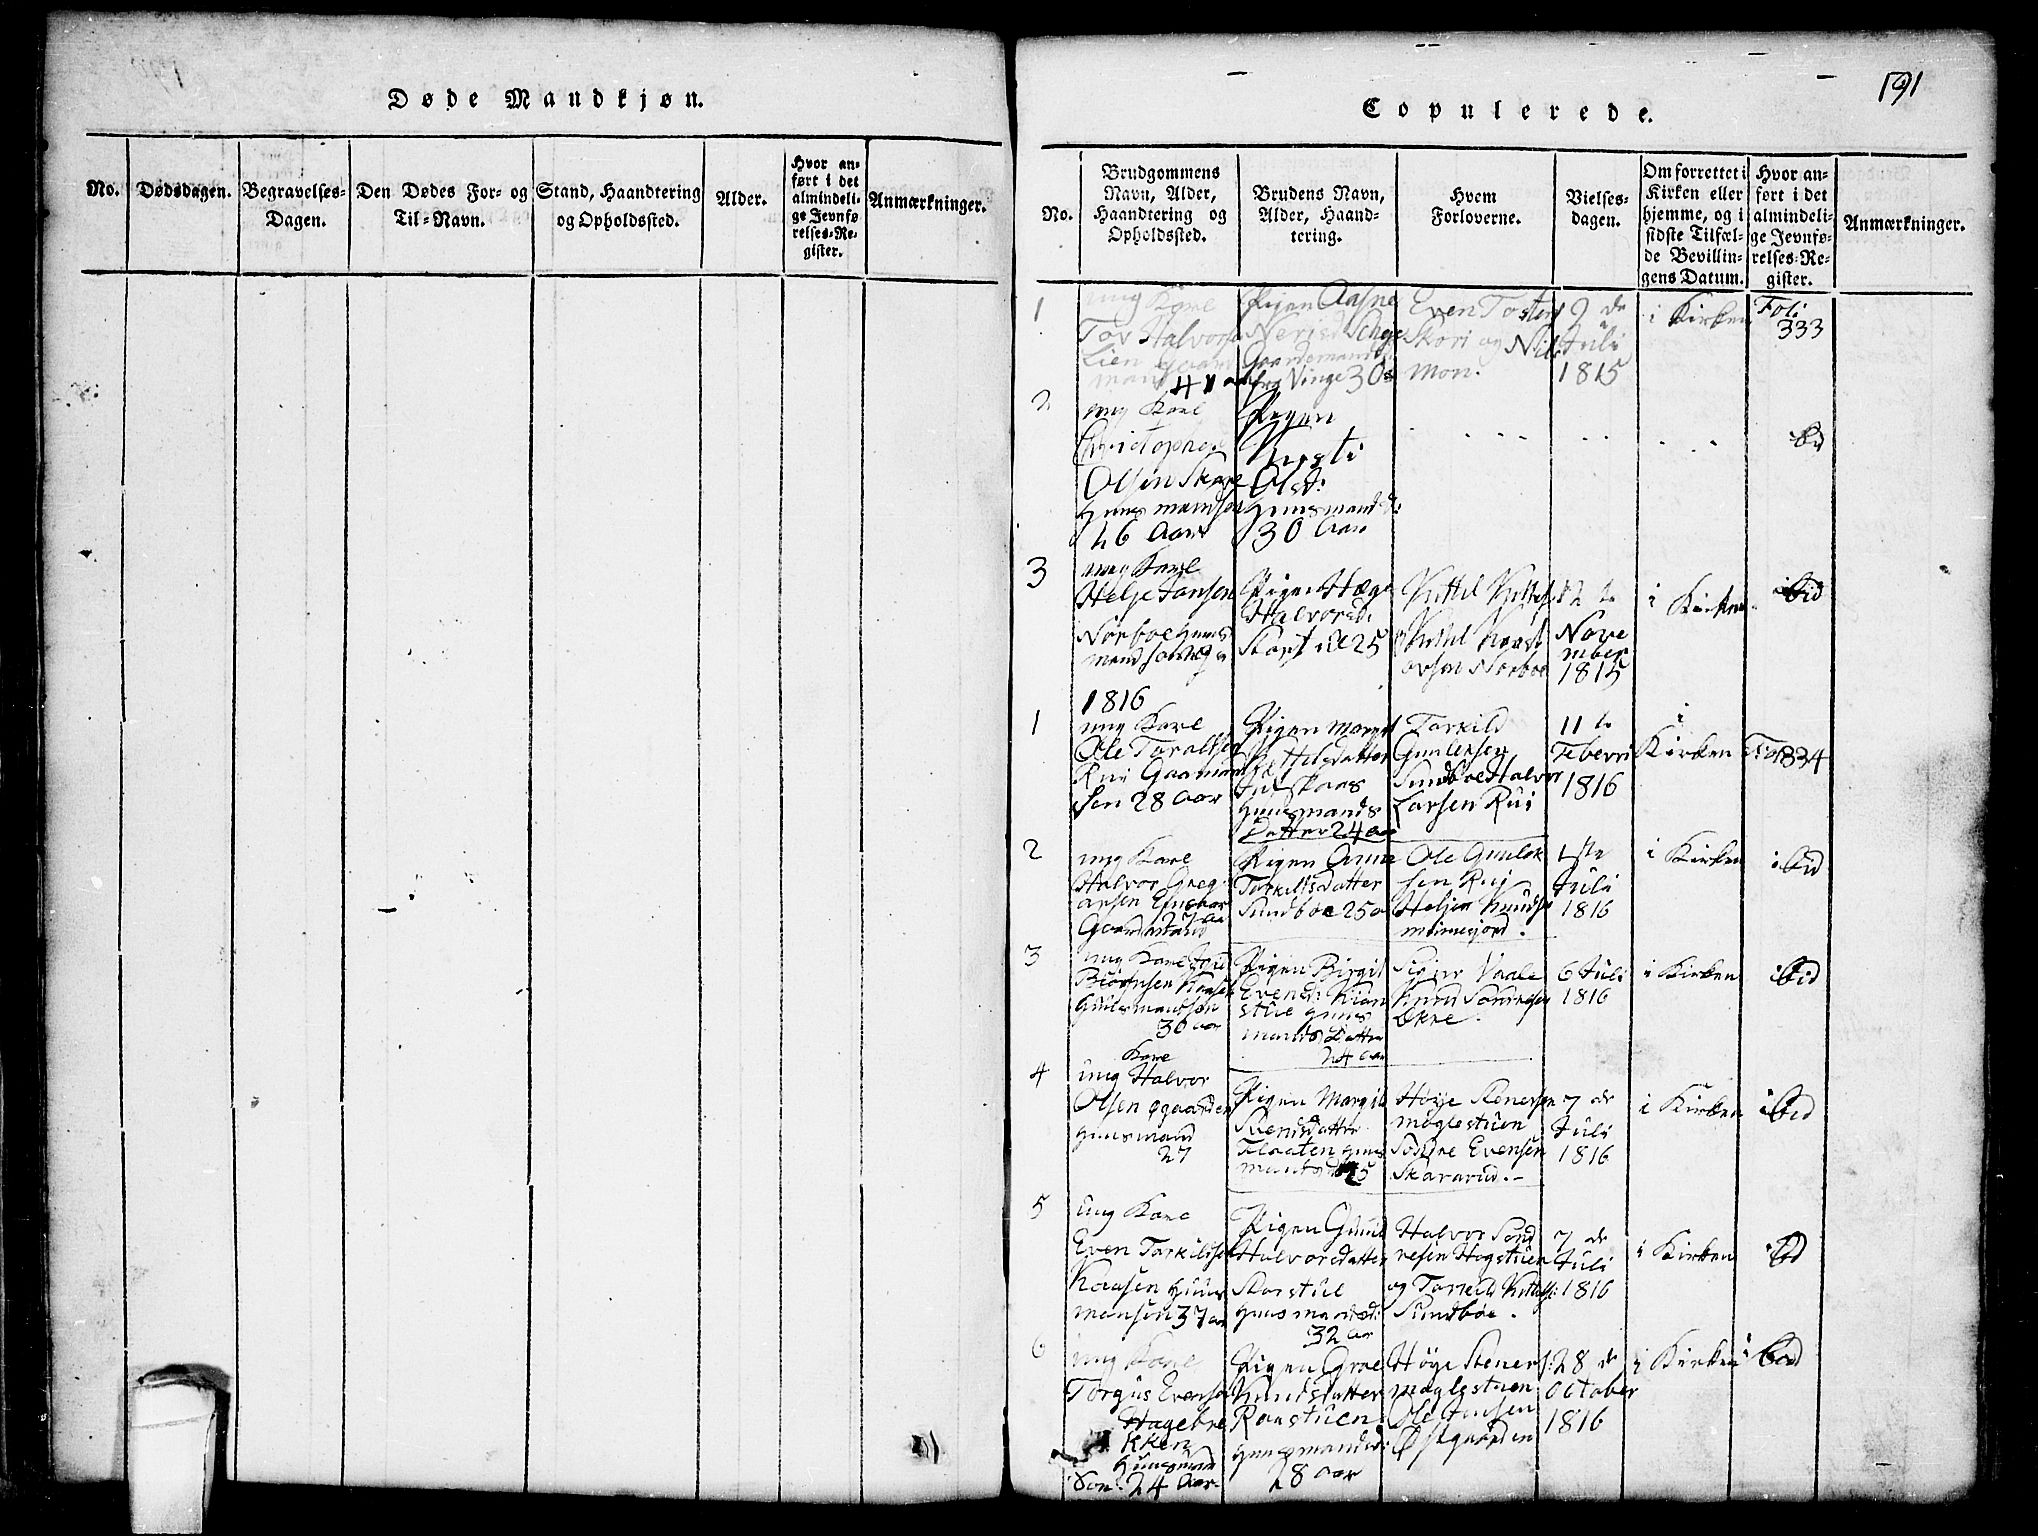 Døde Mandkjøn.
No.
Dødsdagen.
Begravelses-
Dagen.
Den Dødes For- og
Til-Navn.
Stand, Haandtering
og Opholdssted.
Alder.
Hvor an-
ført i det
almindeli-
ge Jevnfø-
relses-Re-
gister.
Anmærkninger.
191
Copulerede.
No.
Brudgommens
Navn, Alder,
Haandtering og
Opholdssted.
Brudens Navn,
Alder, Haand-
tering.
Hvem
Forloverne.
Vielses-
dagen.
Om forrettet i
Kirken eller
hjemme, og i
sidste Tilfæl-
de Bevillin-
gens Datum.
Hvor an-
ført i det
almindeli-
ge Jevnfø-
relses-Re-
gister.
Anmærkninger.
1
ung Karl
Tov Halvorse
Lien Gaard
mand 41 aar
Pigen Aasne
Gaardemands
Vinge 30
Even Tosten
Skori og Nils
Mon.
9 de
Juli
1815
i Kirken
Foli
333
2
ung Karl
Christopher
Olsen Skare
Huusmandsøn
26 Aar
Pigen
Kirsti
Olsd:
Huusmands d:
30 Aar
ibid
3
ung Karl
Helje Jansen
Norboe Huus
mand son
Pigen Hæge
Halvorsd:
25
Kittil Kittels
Kittil Knud
Norboe
12 te
Nove
mber
1815
i Kirken
ibid
1816
1
ung Karl
Ole Toralfsen
Rui Gaarmand
sen 28 aar
Pigen Margit
Kettelsdatter
Huusmands
Datter 24 aar
Torkild
Gunleksen
Sundboe Halvor
Larsen Rui
11 te
Febervi
1816
i
Kirken
Fol 334
2
ung Karl
Halvor Greg
arsen
27 aar
Gaardmand
Pigen Anne
Torkilssdatter
Sundboe 25 a
Ole Gunlek
sen Rui
Heljer Knudse
Mimesjord.
1ste
Juli
1816
i Kirken
ibid
3
ung Karl
Biørnsen
Huusmandsøn
30 aar
Pigen Birgit
Evensd:
stue Huus
mands Datter
24 aar
Vaale
Knud Sondresen
Økre.
6 Juli
1816
i Kirken
ibid
4
Karl
ung Halvor
Olsen øgaarden
Huusmand
27
Pigen Margit
Stensdatter
Flaaten Huus
mands d 25
Høye Stenersen
Møglestuen
Sondre Evensen
Skararud.
7 de
Juli
1816
i Kirken
ibid
5
ung Karl
Even Torkildse
Kaasen Huus
mansen 37 aar
Pigen Gunil
Halvorsdatter
Storstul
Huusmandsd:
32 aar
Halvor Sond
resen Hogstuen
og Torkild Kittels:
Sundboe.
7 de
Juli
1816
i Kirken
ibid
6
ung Karl
Torgus Evensøn
Hagebre
kken
Huusmand
Son. 24 Aar
Pigen Groe
Knudsdatter
Ronstuen
Huusmandsd:
28 aar
Høye Steners:
Møglestuen
Ole Jensen
Østgaarden
28 de
October
1816
i Kirken
ibid